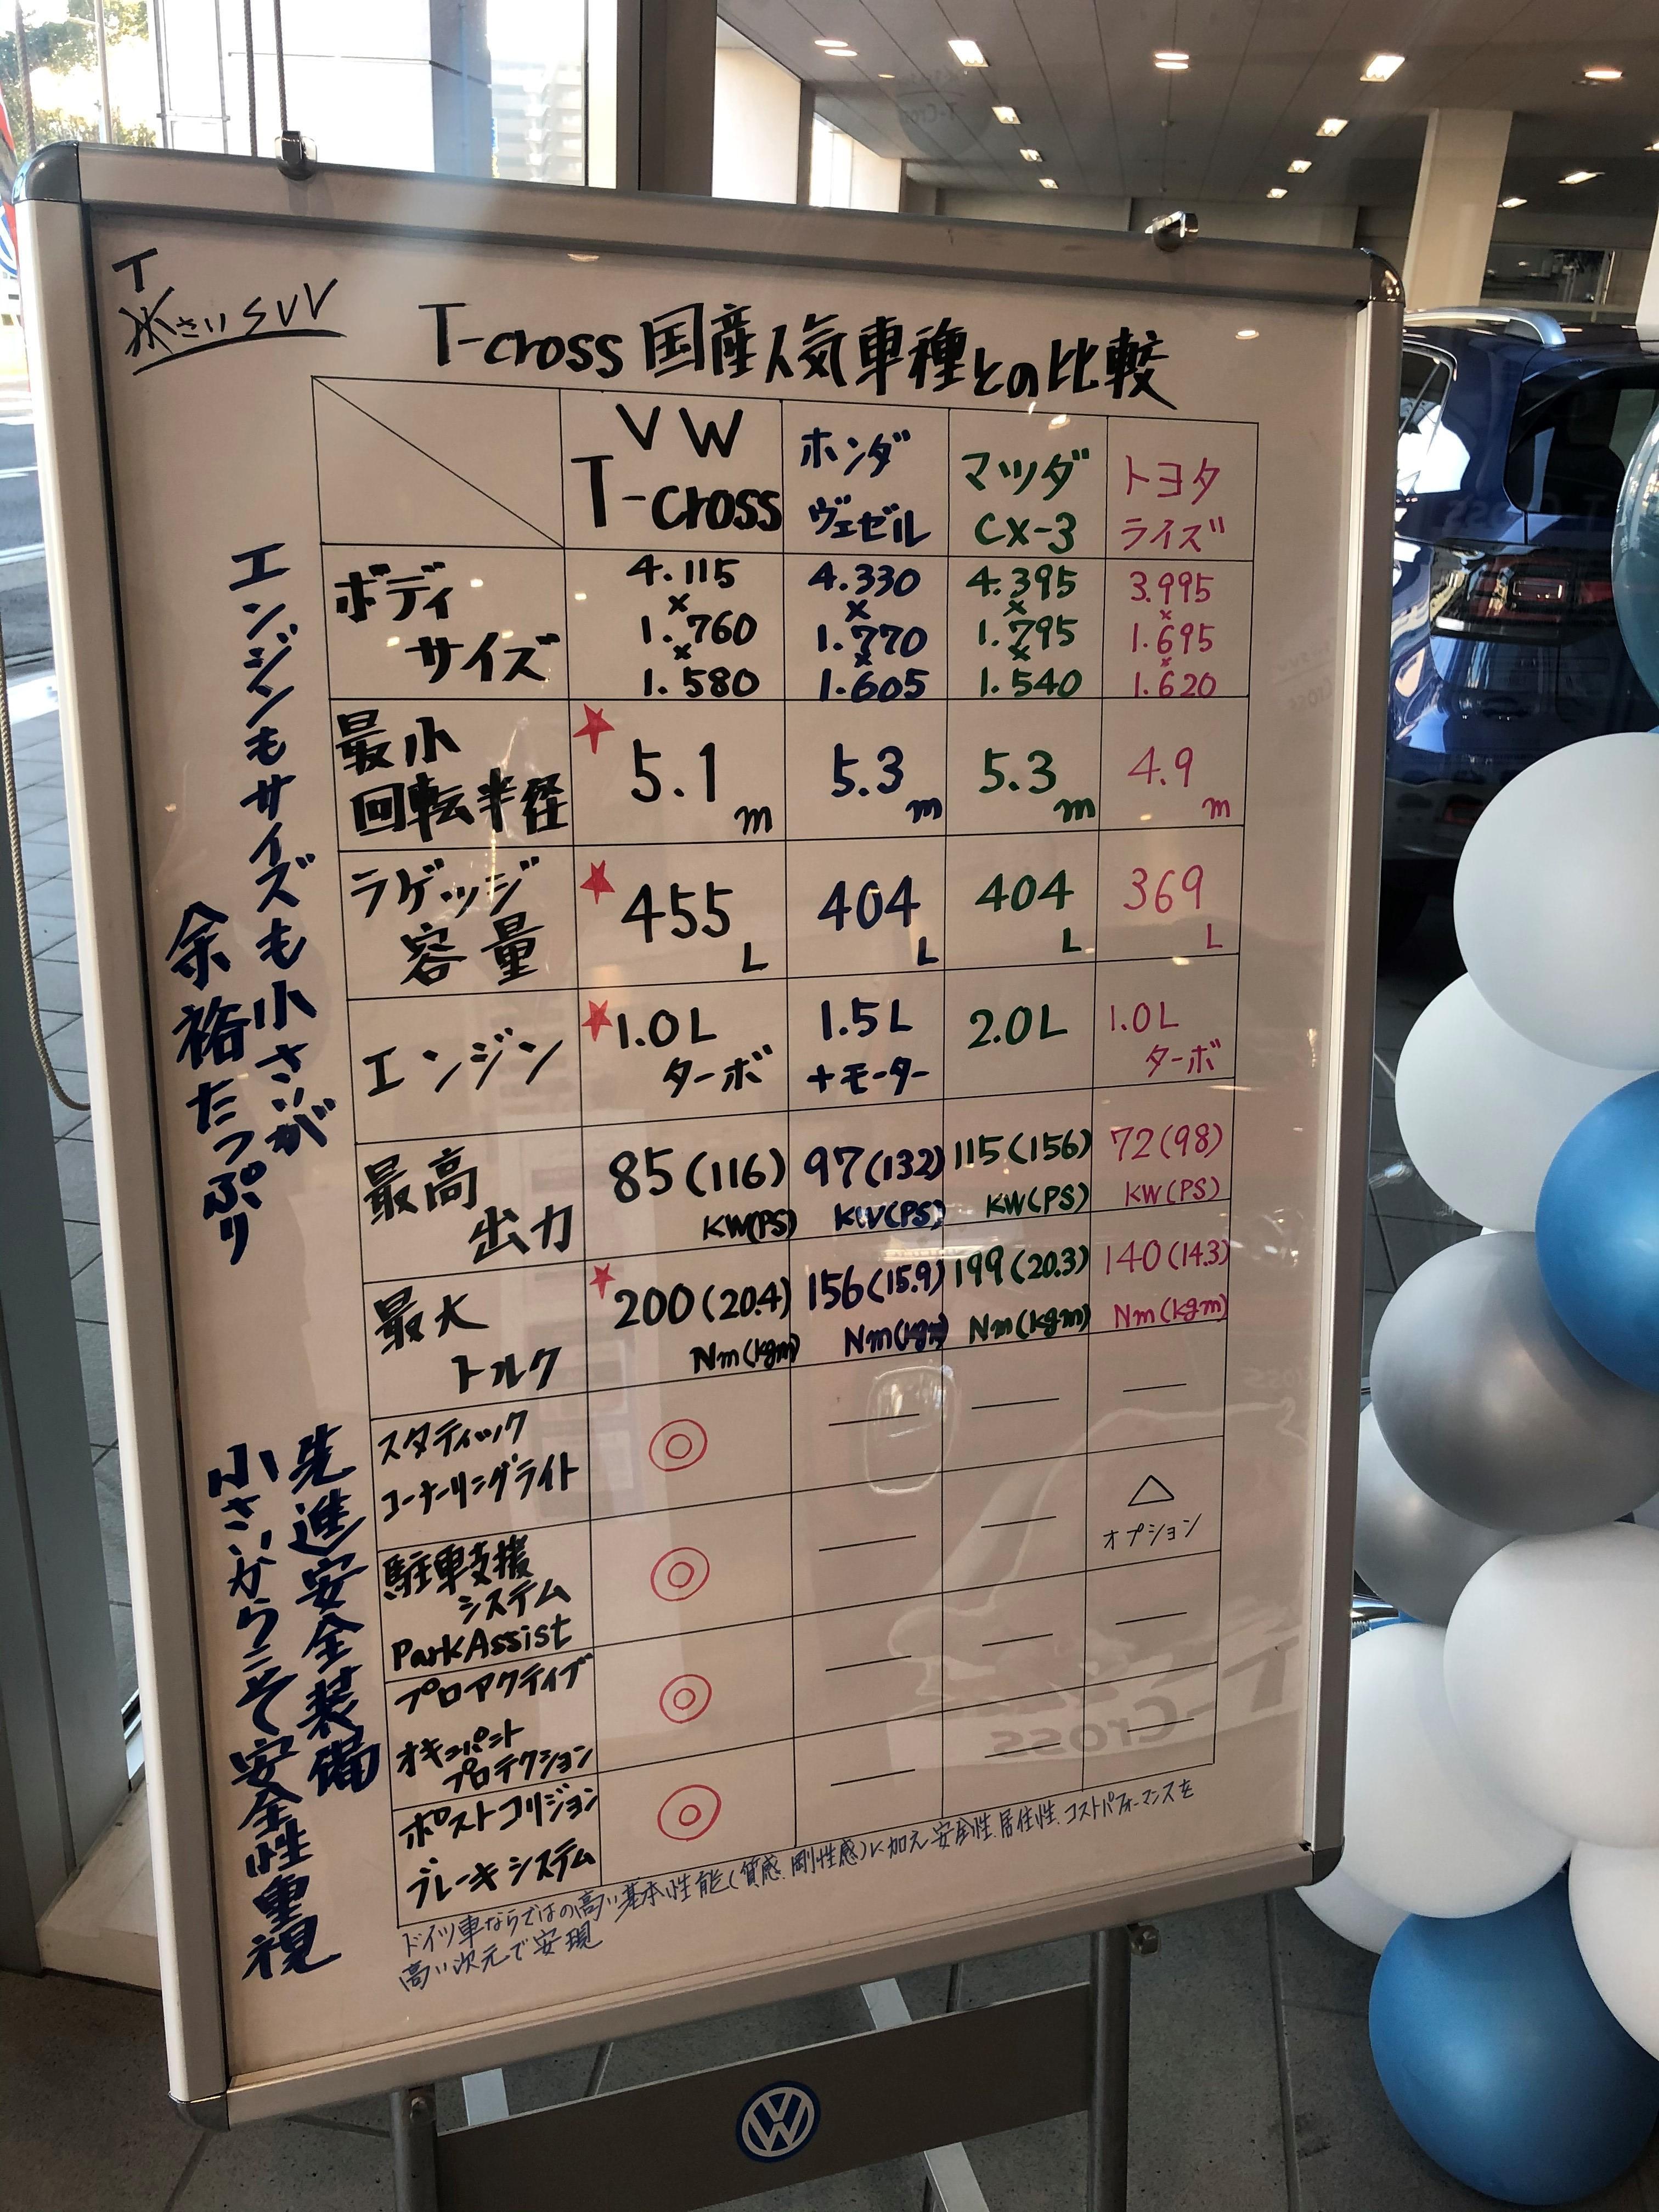 T
さいSUV
T-cross 国産人気車種との比較
VW
T-cross
ホンダ
ヴェゼル
マツダ
CX-3
トヨタ
ライズ
ボディ
サイズ
4.115
×
1.760
×
1.580
4.330
×
1.770
×
1.605
4.395
×
1.795
×
1.540
3.995
×
1.695
×
1.620
最小
回転半径
★
5.1
m
5.3
m
5.3
m
4.9
m
ラゲッジ
容量
★
455
L
404
L
404
L
369
L
エンジン
★1.0L
ターボ
1.5L
+モーター
2.0L
1.0L
ターボ
最高
出力
85(116)
KW(PS)
97(132)
KW(PS)
115(156)
KW(PS)
72(98)
KW(PS)
最大
トルク
★
200(20.4)
Nm(kgm)
156(15.9)
Nm(kgm)
199(20.3)
Nm(kgm)
140(14.3)
Nm(kgm)
スタティック
コーナーリングライト
◎
—
—
—
駐車支援
システム
ParkAssist
◎
—
—
△
オプション
プロアクティブ
オキュパント
プロテクション
◎
—
—
—
ポストコリジョン
ブレーキシステム
◎
—
—
—
エンジンもサイズも小さいが
余裕たっぷり
先進安全装備
小さいからこそ安全性重視
ドイツ車ならではの高い基本性能(質感、剛性感)に加え安全性、居住性、コストパフォーマンスを
高い次元で実現
VW
T
Cross